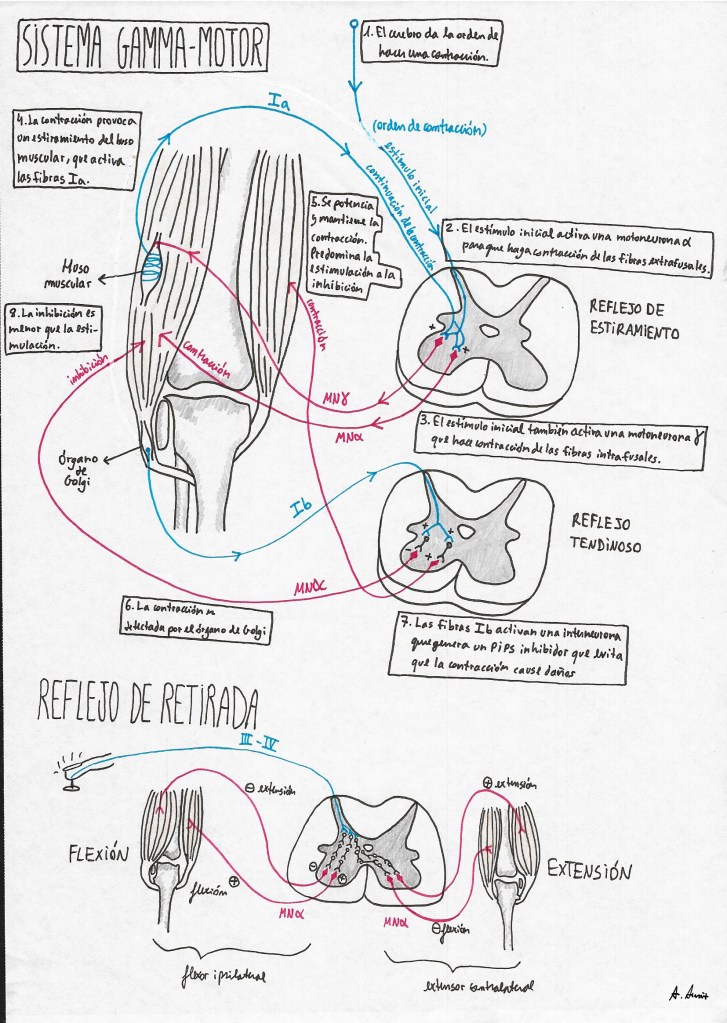 SISTEMA GAMMA-MOTOR
1. El cerebro da la orden de
hacer una contracción.
Ia
(orden de contracción)
estímulo inicial
continuación de la contracción
4. La contracción provoca
un estiramiento del huso
muscular, que activa
las fibras Ia.
5. Se potencia
y mantiene la
contracción.
Predomina la
estimulación a la
inhibición
2. El estímulo inicial activa una motoneurona α
para que haga contracción de las fibras extrafusales.
Huso
muscular
8. La inhibición es
menor que la esti-
mulación.
REFLEJO DE
ESTIRAMIENTO
inhibición
contracción
contracción
MNγ
MNα
3. El estímulo inicial también activa una motoneurona γ
que hace contracción de las fibras intrafusales.
Órgano
de
Golgi
Ib
REFLEJO
TENDINOSO
MNα
6. La contracción es
detectada por el órgano de Golgi
7. Las fibras Ib activan una interneurona
que genera un PiPs inhibidor que evita
que la contracción cause daños
REFLEJO DE RETIRADA
III-IV
⊖ extensión
⊕ extensión
FLEXIÓN
EXTENSIÓN
flexión ⊕
MNα
MNα
⊖ flexión
flexor ipsilateral
extensor contralateral